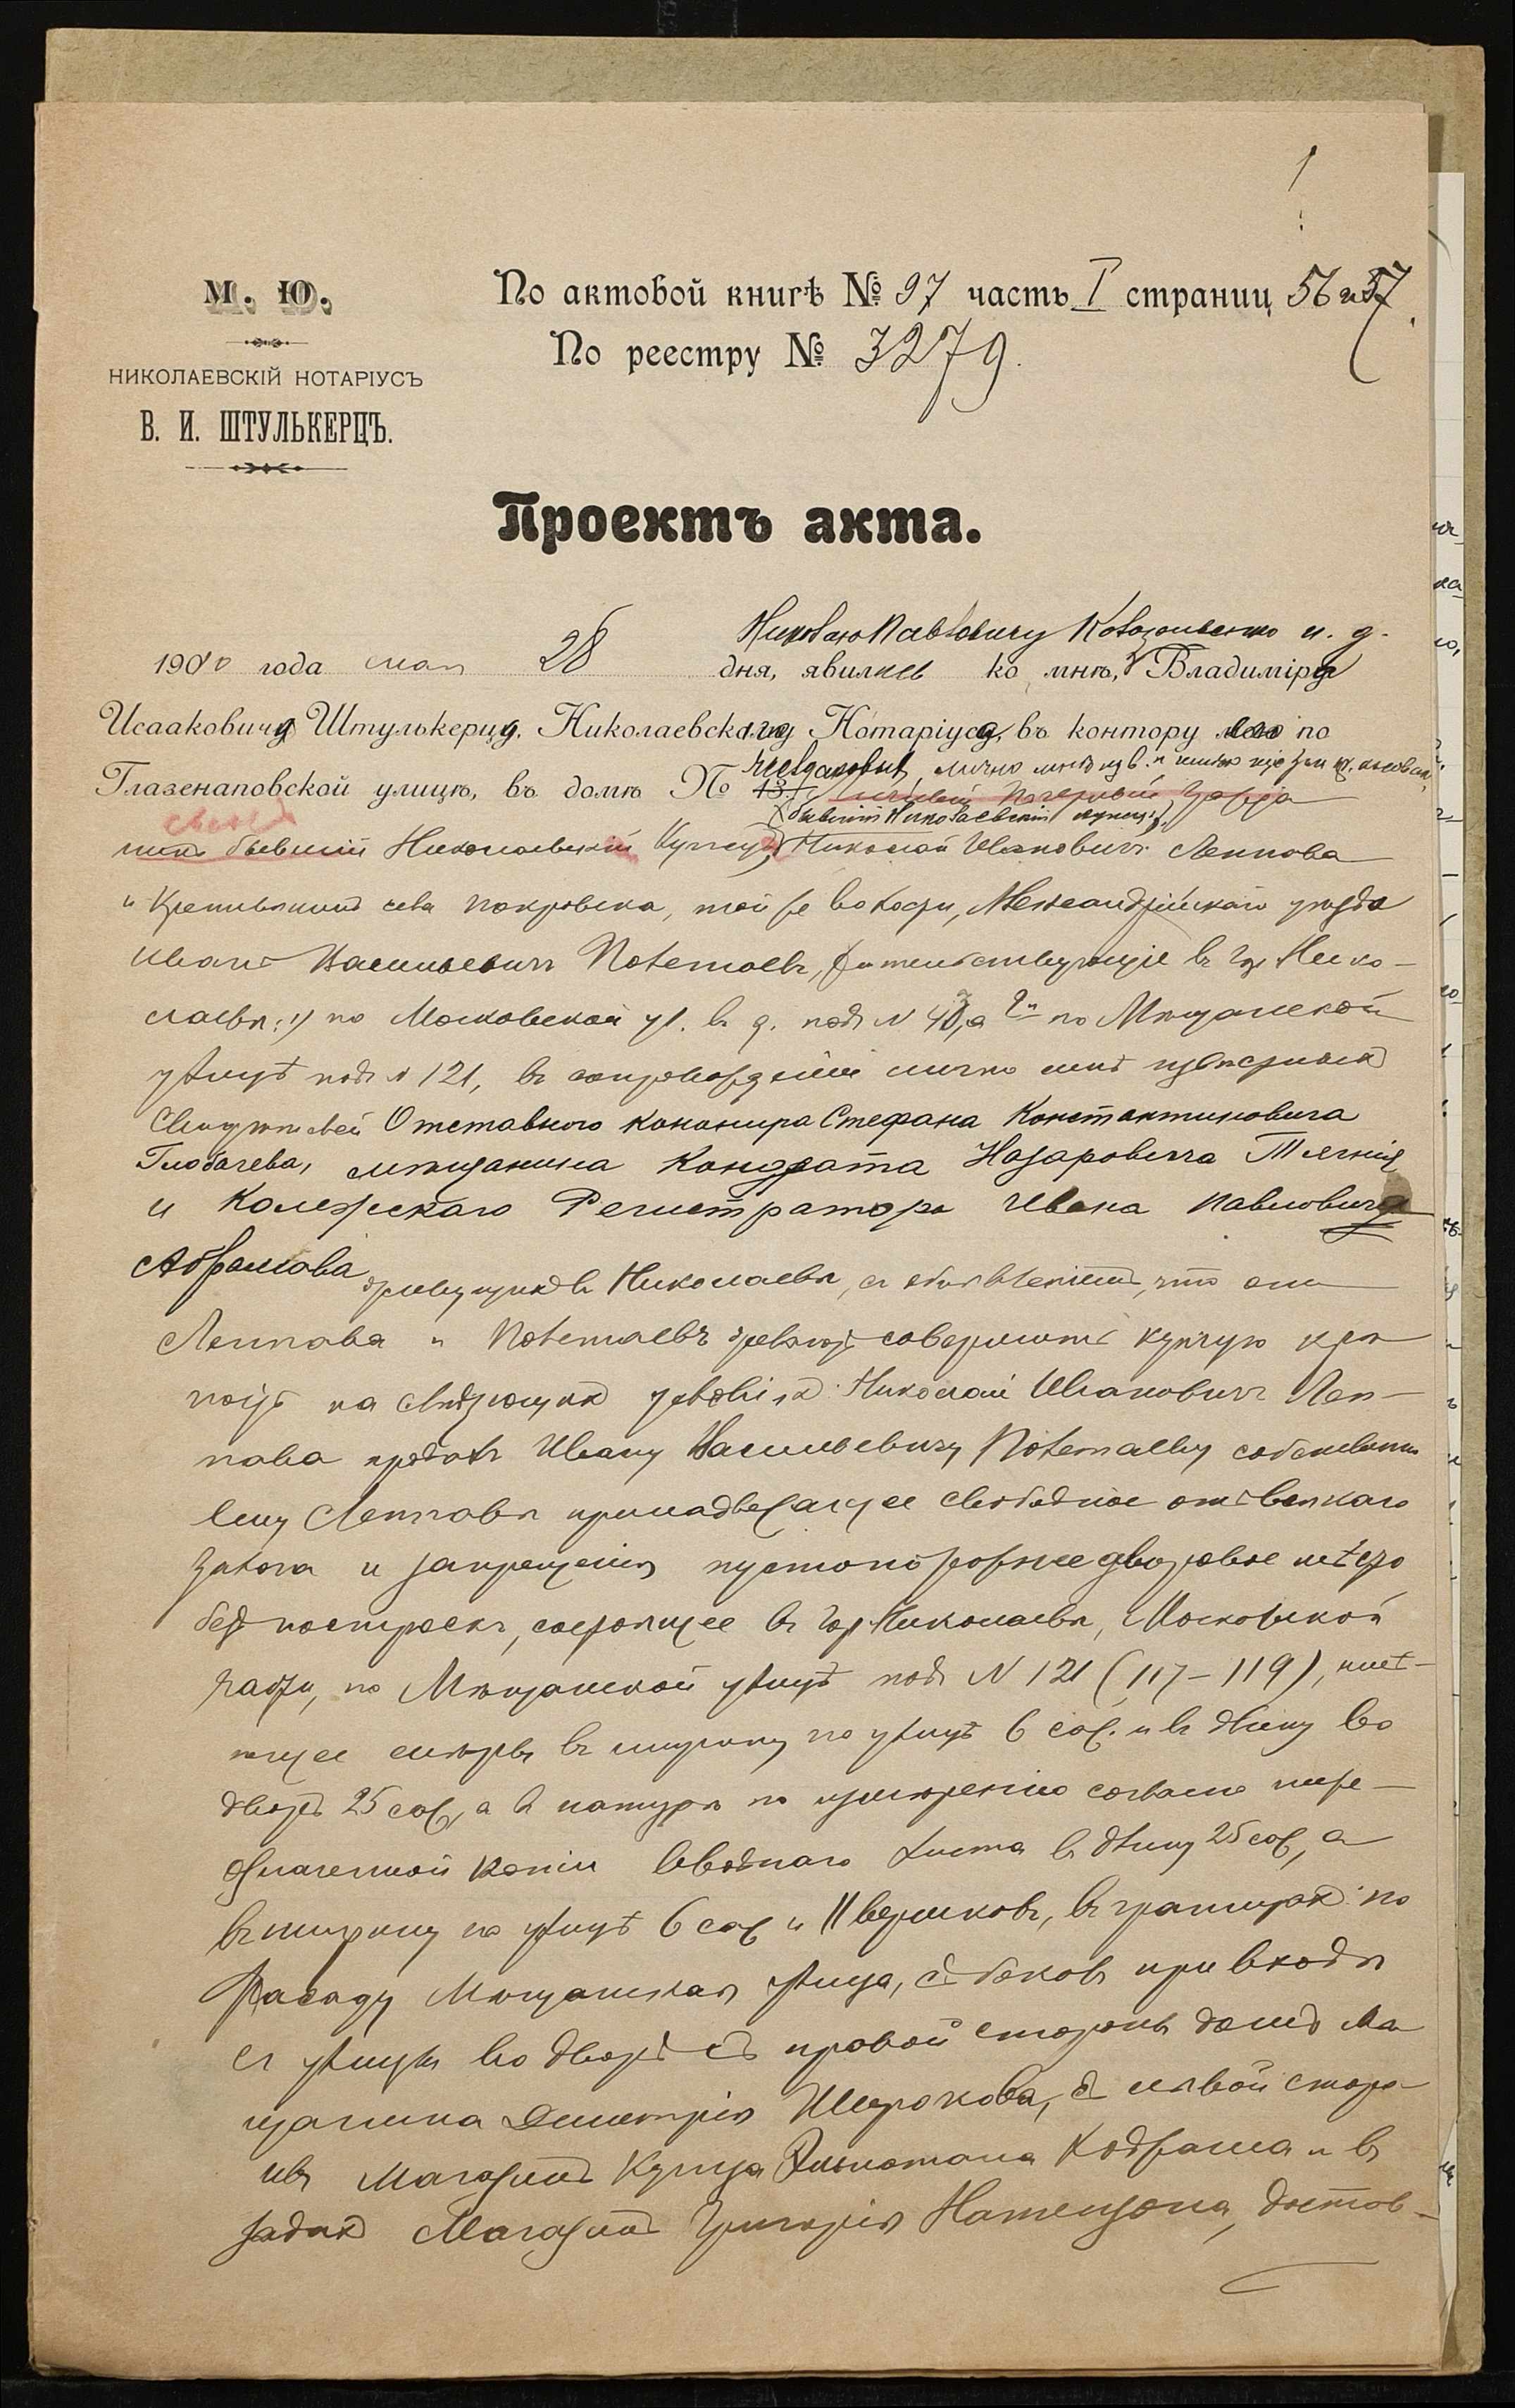 М. Ю.
НИКОЛАЕВСКІЙ НОТАРІУСЪ
В. И. ШТУЛЬКЕРЦЪ.
По актовой книгѣ № 97 часть I страниц 56 и 57
По реестру № 3279.
Проектъ акта.
Николаю Павловичу и. д.
1900 года мая 28 дня, явились ко мнѣ, Владиміру
Исааковичу Штулькерцу, Николаевскому Нотаріусу, въ контору по
лично
Глазенаповской улицѣ, въ домѣ № 13,
бывшій Николаевскій купецъ
бывшій Николаевскій Купецъ Николай Ивановичъ Леппова
и Крестьянинъ села Покровска, той же волости, Александрійскаго уѣзда
Иванъ Васильевичъ Полетаевъ, жительствующіе въ гор. Нико-
лаевѣ: 1) по Московской ул. въ д. подъ N а 2й по Мѣщанской
улицѣ подъ N 121, въ сопровожденіи лично мнѣ извѣстныхъ
Свидѣтелей Отставного канонира Стефана Константиновича
Глобачева, мѣщанина Кондрата Назаровича
и Колежскаго Регистратора Ивана Павловича
Абрамова въ Николаевѣ, съ объявленіемъ, что они
Леппова и Полетаевъ желаютъ совершить купчую крѣ-
пость на слѣдующихъ условіяхъ: Николай Ивановичъ Леп-
пова продалъ Ивану Васильевичу Полетаеву собственно
ему Лепповѣ принадлежащее свободное отъ всякаго
залога и запрещенія пустопорожнее дворовое мѣсто
безъ построекъ, состоящее въ гор. Николаевѣ, Московской
части, по Мѣщанской улицѣ подъ N 121 (117-119), имѣ-
ющее мѣры въ ширину по улицѣ 6 саж. и въ длину во
дворъ 25 саж, а въ натурѣ по измѣренію согласно ниже-
означенной копіи вводнаго листа въ длину 25 саж, а
въ ширину по улицѣ 6 саж и 11 вершковъ, въ границахъ: по
фасаду Мѣщанская улица, съ боковъ при входѣ
съ улицы во дворъ съ правой стороны домъ мѣ-
щанина Димитрія Широкова, съ лѣвой сторо-
ны Магазинъ Купца и въ
задахъ Магазинъ Григорія Натензона, достав-